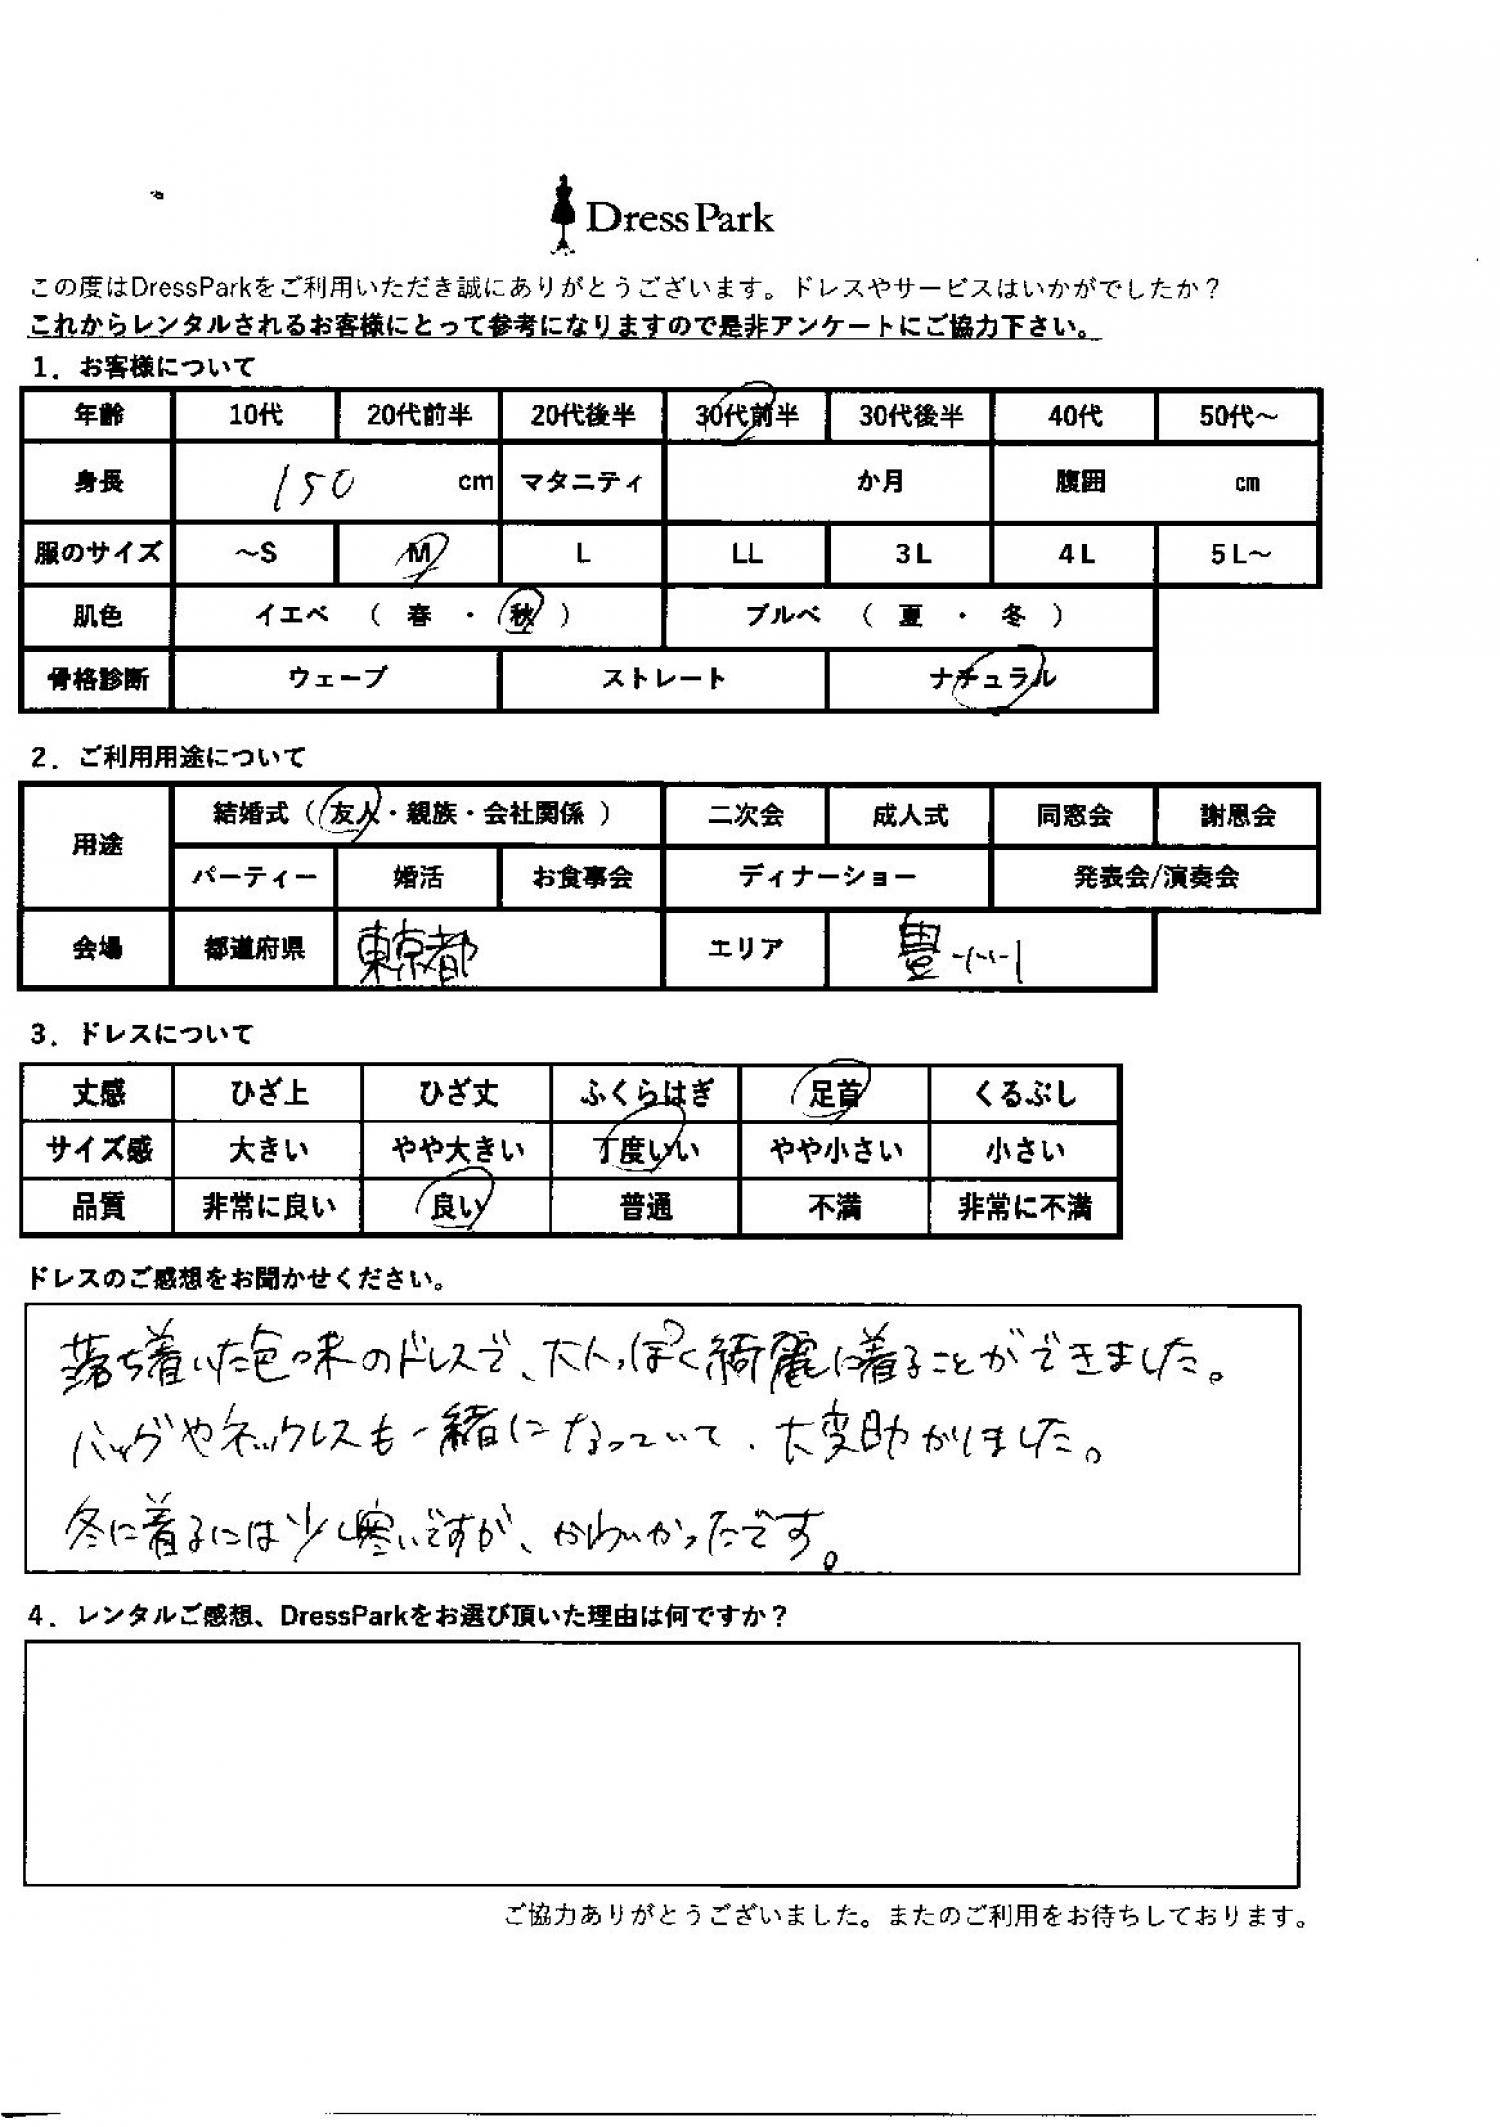 Dress Park
この度はDressParkをご利用いただき誠にありがとうございます。ドレスやサービスはいかがでしたか？
これからレンタルされるお客様にとって参考になりますので是非アンケートにご協力下さい。
1．お客様について
年齢 10代 20代前半 20代後半 30代前半 30代後半 40代 50代～
身長 150 cm マタニティ か月 腹囲 cm
服のサイズ ～S M L LL 3L 4L 5L～
肌色 イエベ （ 春 ・ 秋 ） ブルベ （ 夏 ・ 冬 ）
骨格診断 ウェーブ ストレート ナチュラル
2．ご利用用途について
用途 結婚式（ 友人・親族・会社関係 ） 二次会 成人式 同窓会 謝恩会
パーティー 婚活 お食事会 ディナーショー 発表会/演奏会
会場 都道府県 東京都 エリア 豊洲
3．ドレスについて
丈感 ひざ上 ひざ丈 ふくらはぎ 足首 くるぶし
サイズ感 大きい やや大きい 丁度いい やや小さい 小さい
品質 非常に良い 良い 普通 不満 非常に不満
ドレスのご感想をお聞かせください。
落ち着いた色味のドレスで、大人っぽく綺麗に着ることができました。
バッグやネックレスも一緒になっていて、大変助かりました。
冬に着るには少し寒いですが、かわいかったです。
4．レンタルご感想、DressParkをお選び頂いた理由は何ですか？
ご協力ありがとうございました。またのご利用をお待ちしております。